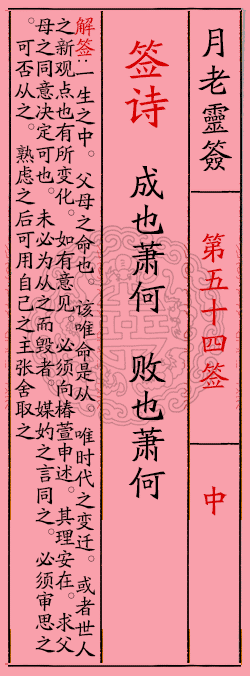 月老靈簽
第五十四签
中
签诗
成也萧何 败也萧何
解签:一生之中。父母之命也。该唯命是从。唯时代之变迁。或者世人
之新观点也有所变化。如有意见 必须向椿萱申述。其理安在。求父
母之同意决定可也。未必为从之而毁者。媒妁之言同之。必须审思之
。可否从之。熟虑之后可用自己之主张舍取之
。